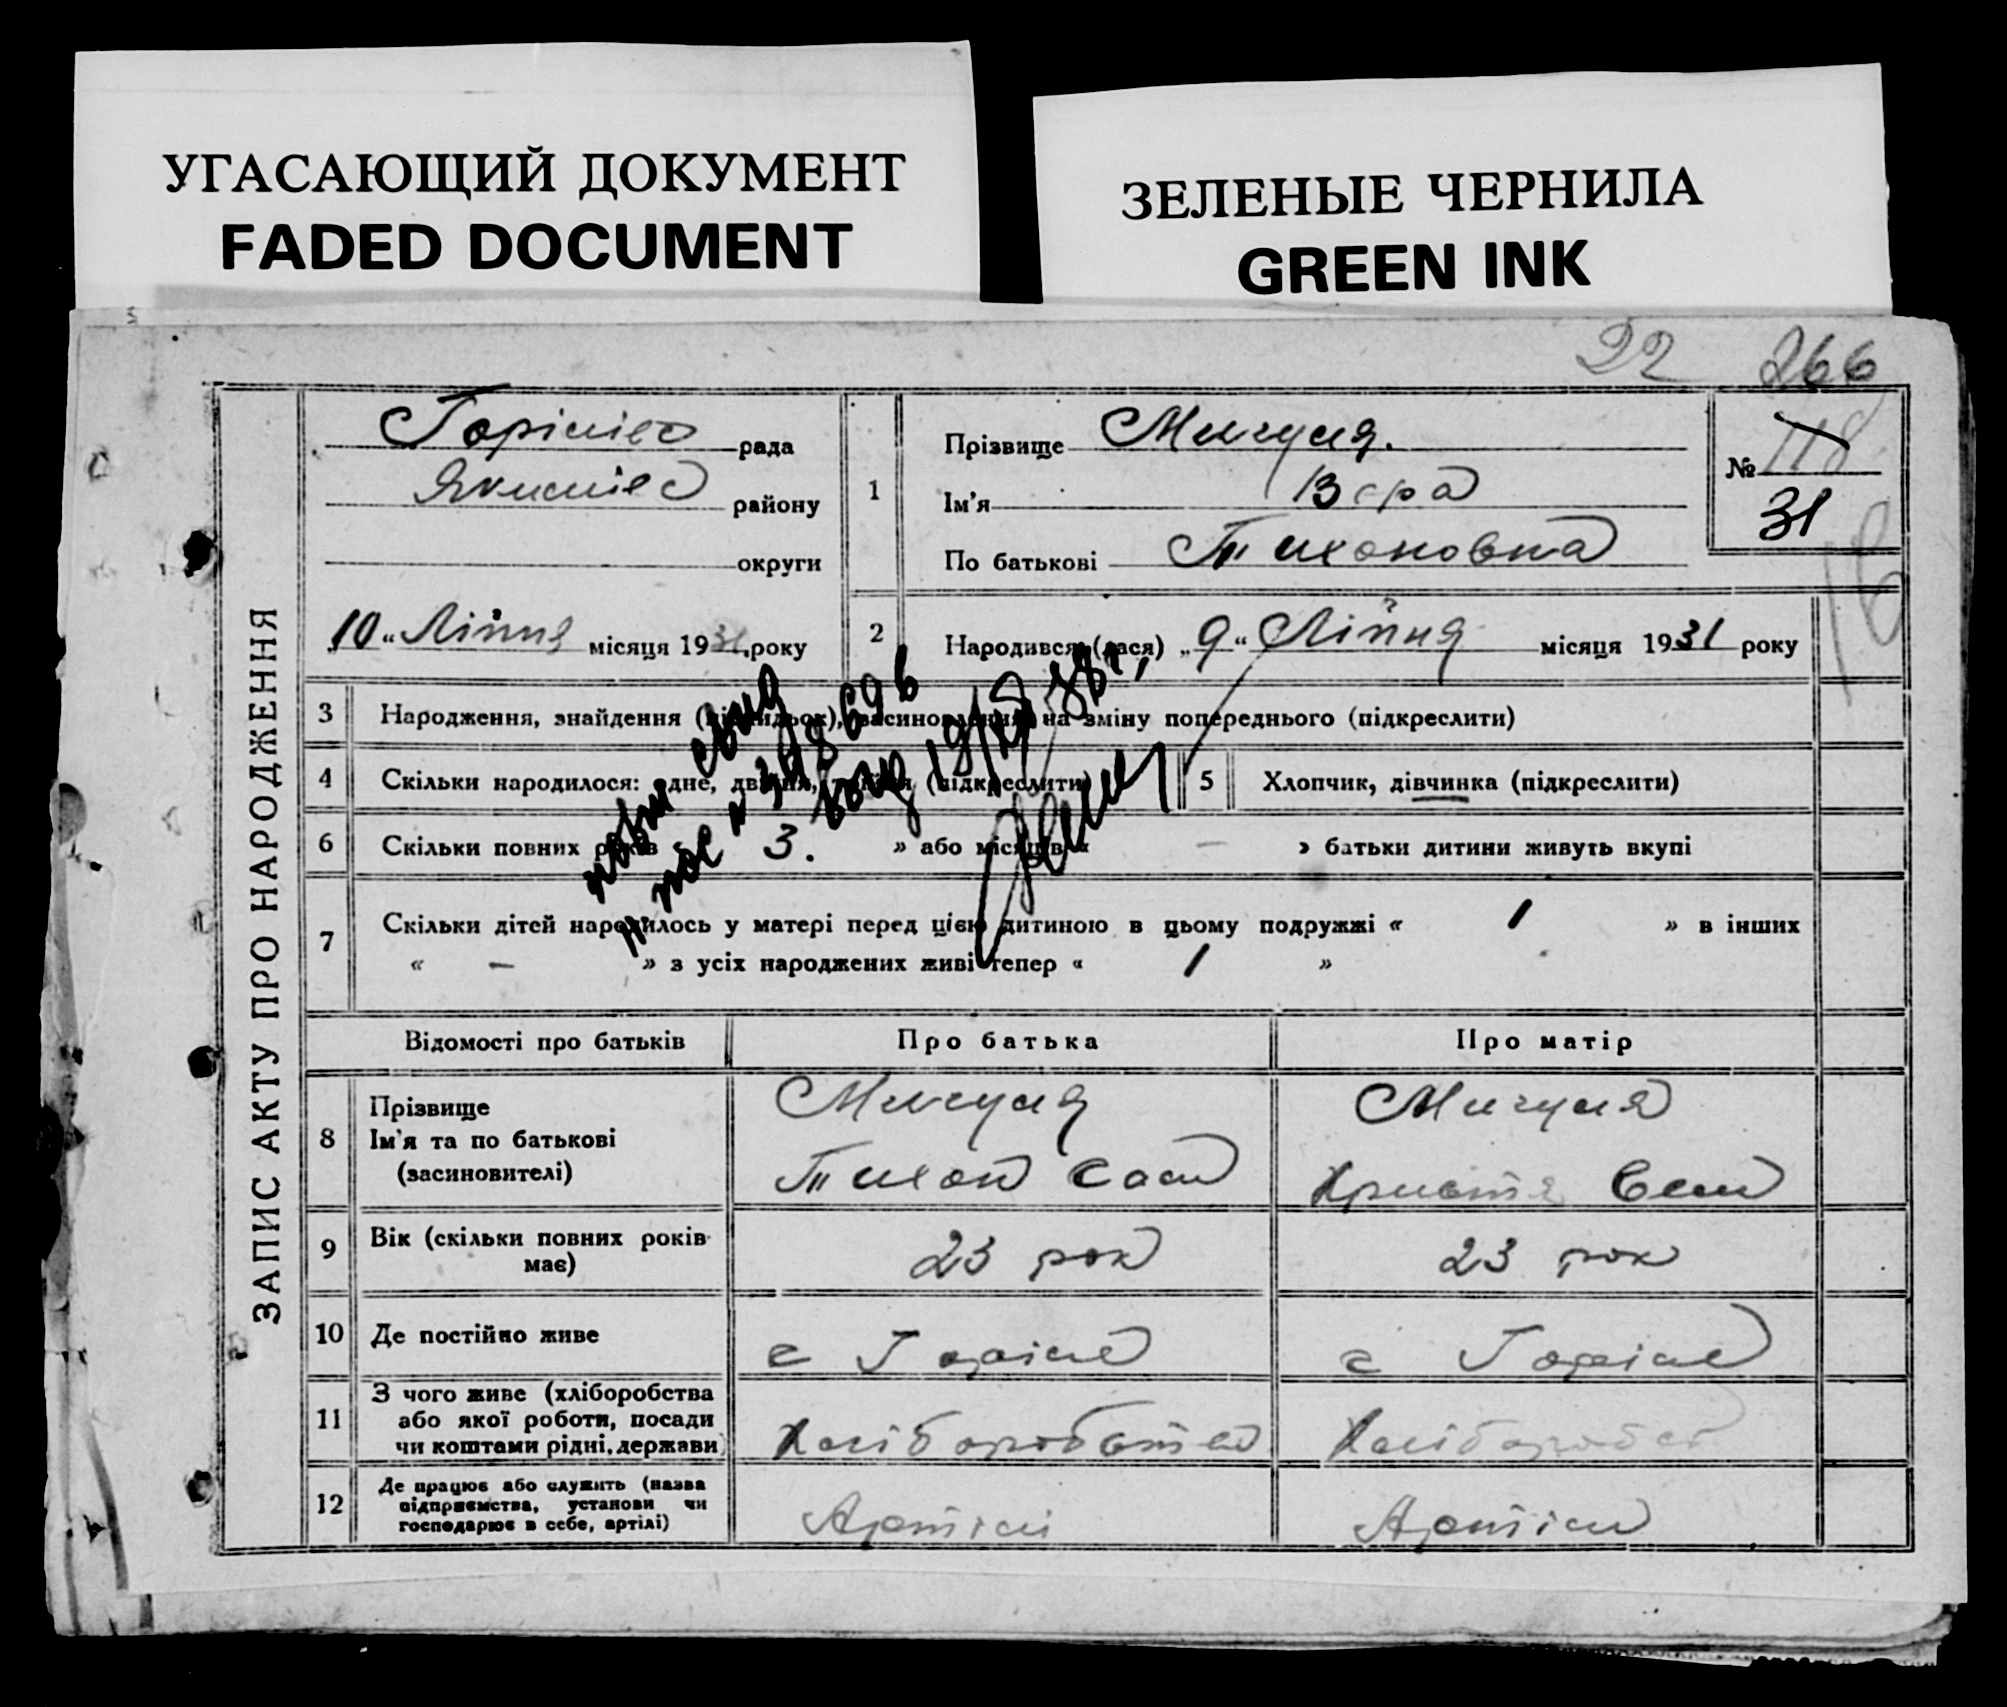 УГАСАЮЩИЙ ДОКУМЕНТ
FADED DOCUMENT
ЗЕЛЕНЫЕ ЧЕРНИЛА
GREEN INK
22 266
ЗАПИС АКТУ ПРО НАРОДЖЕННЯ
рада
району
округи
10 " Ліпня місяця 1931 року
1
Прізвище Мигуля.
Ім'я Вера
По батькові Тихоновна
№ 118
31
2 Народився (лася) „ 9 " Ліпня місяця 1931 року
3 Народження, знайдення (підкидьок), засиновлення, на зміну попереднього (підкреслити)
4 Скільки народилося: одне, двійня, трійня (підкреслити)
5 Хлопчик, дівчинка (підкреслити)
6 Скільки повних років « 3. » або місяців « — » батьки дитини живуть вкупі
7 Скільки дітей народилось у матері перед цією дитиною в цьому подружжі « 1 » в інших
« — » з усіх народжених живі тепер « 1 »
Відомості про батьків Про батька Про матір
8 Прізвище
Ім'я та по батькові
(засновителі)
Мигуля
Тихон
Мигуля
Христя Сем
9 Вік (скільки повних років має) 23 рок 23 рок
10 Де постійно живе
с
с
11 З чого живе (хліборобства
або якої роботи, посади
чи коштами рідні, держави)
Хліборобства
Хлібороб
12 Де працює або служить (назва
підприємства, установи чи
господарює в себе, артілі)
Артілі
Артілі